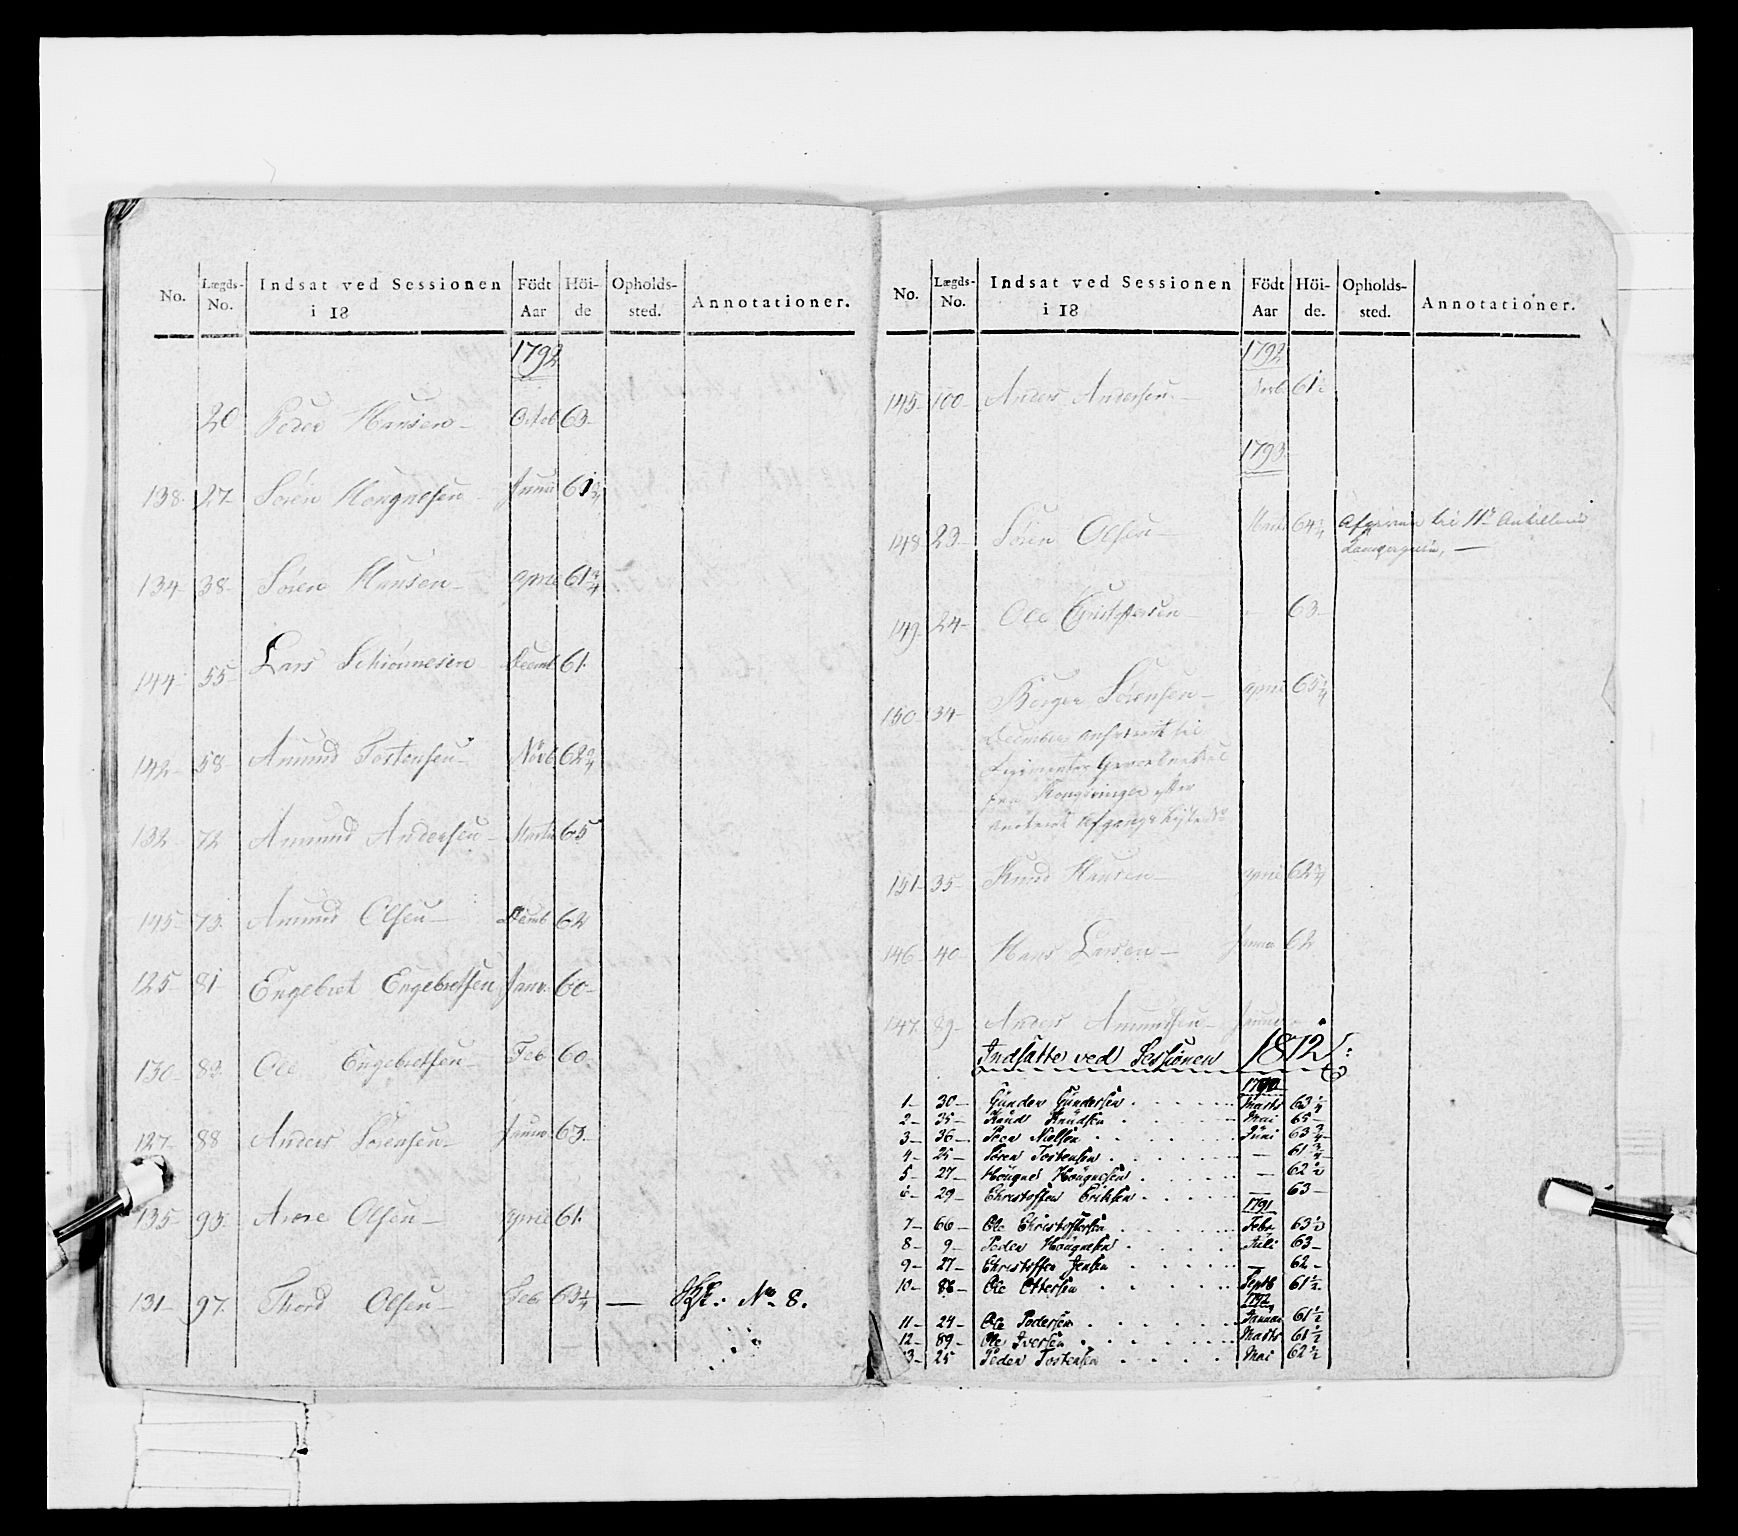 No. Lægds-No. Indsat ved Sessionen i 18 Födt Aar Höi-de Opholds-sted. Annotationer.
1792
20 Peder Hansen - Octob 63 -
138 - 27 - Sören Hougnesen - Junii 61
134 38 - Sören Hansen - April 61 3/4
144 - 55 - Lars Decemb 61.
142 - 58 Amund Tostensen - Novb 62 3/4
132 - 72 Amund Andersen - Marti 65
145 - 73. Amund Olsen - Decemb 62
125 - 81 - Engebret Engebretsen Janv. 60 -
130 - 83. Ole Engebretsen - Feb 60.
127. 88 Anders Sörensen - Januar 63 -
135 - 95. Arne Olsen - April 61.
131 - 97. Thord Olsen - Feb. 63 1/4 — No. 8.
No. Lægds-No. Indsat ved Sessionen i 18 Födt Aar Höi-de. Opholds-sted. Annotationer.
1792
145 - 100 - Anders Andersen - 61 1/2
1793.
148 23 - Sören Olsen - Marti 64 1/4 Afgiven til
149 - 24 - Ole Christophersen - - 63 -
150 - 34 - Börger Sörensen - April 65 1/4
December ansat til
Regimentets
fra Kongsvinger efter
151 - 35 - Knud Hansen - April 62 3/4
146 - 40 - Hans Larsen - Janua 62
147. 89 - Anders Amundsen - Janua
Indsatte ved Sessionen 1812
1790
1 - 30 - Gunder Gundersen Marts 63 1/4
2 - 35 - Knud Knudsen Mai 65 -
3 - 36 - Peer Nielsen Juni 63 3/4
4 - 25 - Sören Tostensen — 61 3/4
5 - 27 - Hougne Hougnesen — 62 1/2
6 - 29 - Christoffer Eriksen — 63 -
1791
7 - 66 - Ole Christoffersen Febr 63 1/2
8 - 9 - Peder Hougnesen Juli 63 -
9 - 27 - Christoffer Jensen — 62 -
10 - 86 - Ole Ottersen Septb 61 1/2
1792
11 - 24 - Ole Pedersen Januar 61 1/2
12 - 89 - Ole Iversen Marts 61 1/2
13 - 25 Peder Tostensen Mai 62 1/2